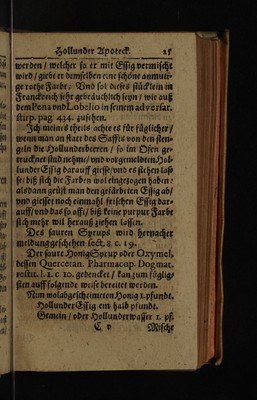 Hollunder Apoteck. 25
werden / welcher so er mit Essig vermischt
wird / giebt er demselben eine schöne anmuti-
ge rothe Farbe: Vnd sol dieses stücklein in
Franckreich sehr gebräuchlich seyn / wie auß
dem Pena vnd Lobelio in seinem adversar.
stirp. pag. 434. zusehen.
Ich meines theils achte es für füglicher /
wenn man an statt des Saffts von den sten-
geln die Hollunderbeeren / so im Ofen ge-
trucknet sind nehme / vnd vorgemeldten Hol-
lunder Essig darauff giesse / vnd es stehen las-
se / biß sich die Farben wol eingezogen haben:
alsdann geüst man den gefärbeten Essig ab /
vnd giesset noch einmahl frischen Essig dar-
auff / vnd das so offt / biß keine purpur Farbe
sich mehr wil herauß ziehen lassen.
Des sauren Syrups wird hernacher
meldung geschehen sect. 8. c. 19.
Der saure Honig Syrup oder Oxymel,
dessen Quercetan. Pharmacop. Dogmat.
restit. l. 1. c 10. gedencket / kan zum füglig-
sten auff folgende weise bereitet werden.
Nim wolabgescheimeten Honig 1. pfund.
Hollunder Essig ein halb pfund.
Gemein / oder Hollunderwasser 1. pf.
C v Mische